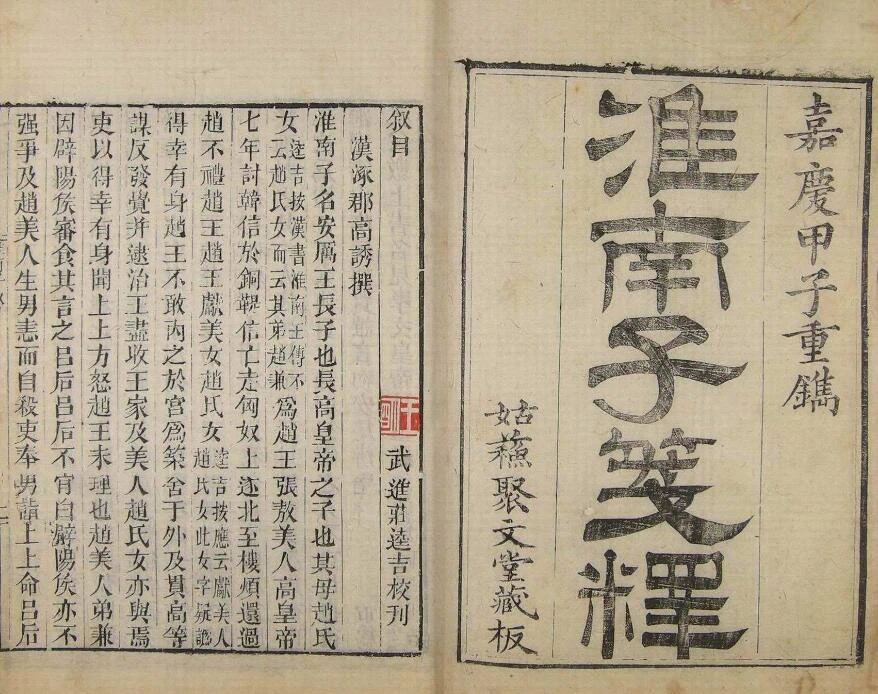 嘉慶甲子重鐫
淮南子箋釋
姑蘇聚文堂藏板
叙目
武進莊逵吉校刊
漢涿郡高誘撰
淮南子名安厲王長子也長高皇帝之子也其母趙氏
女逵吉按漢書淮南王傳不云趙氏女而云其弟趙兼爲趙王張敖美人高皇帝
七年討韓信於銅鞮信亡走匈奴上遂北至樓煩還過
趙不禮趙王趙王獻美女趙氏女逵吉按應云獻美人趙氏女此女字疑譌
得幸有身趙王不敢內之於宮爲築舍于外及貫高等
謀反發覺并逮治王盡收王家及美人趙氏女亦與焉
吏以得幸有身聞上上方怒趙王未理也趙美人弟兼
因辟陽侯審食其言之呂后呂后不肯白辟陽侯亦不
强爭及趙美人生男恚而自殺吏奉男詣上上命呂后